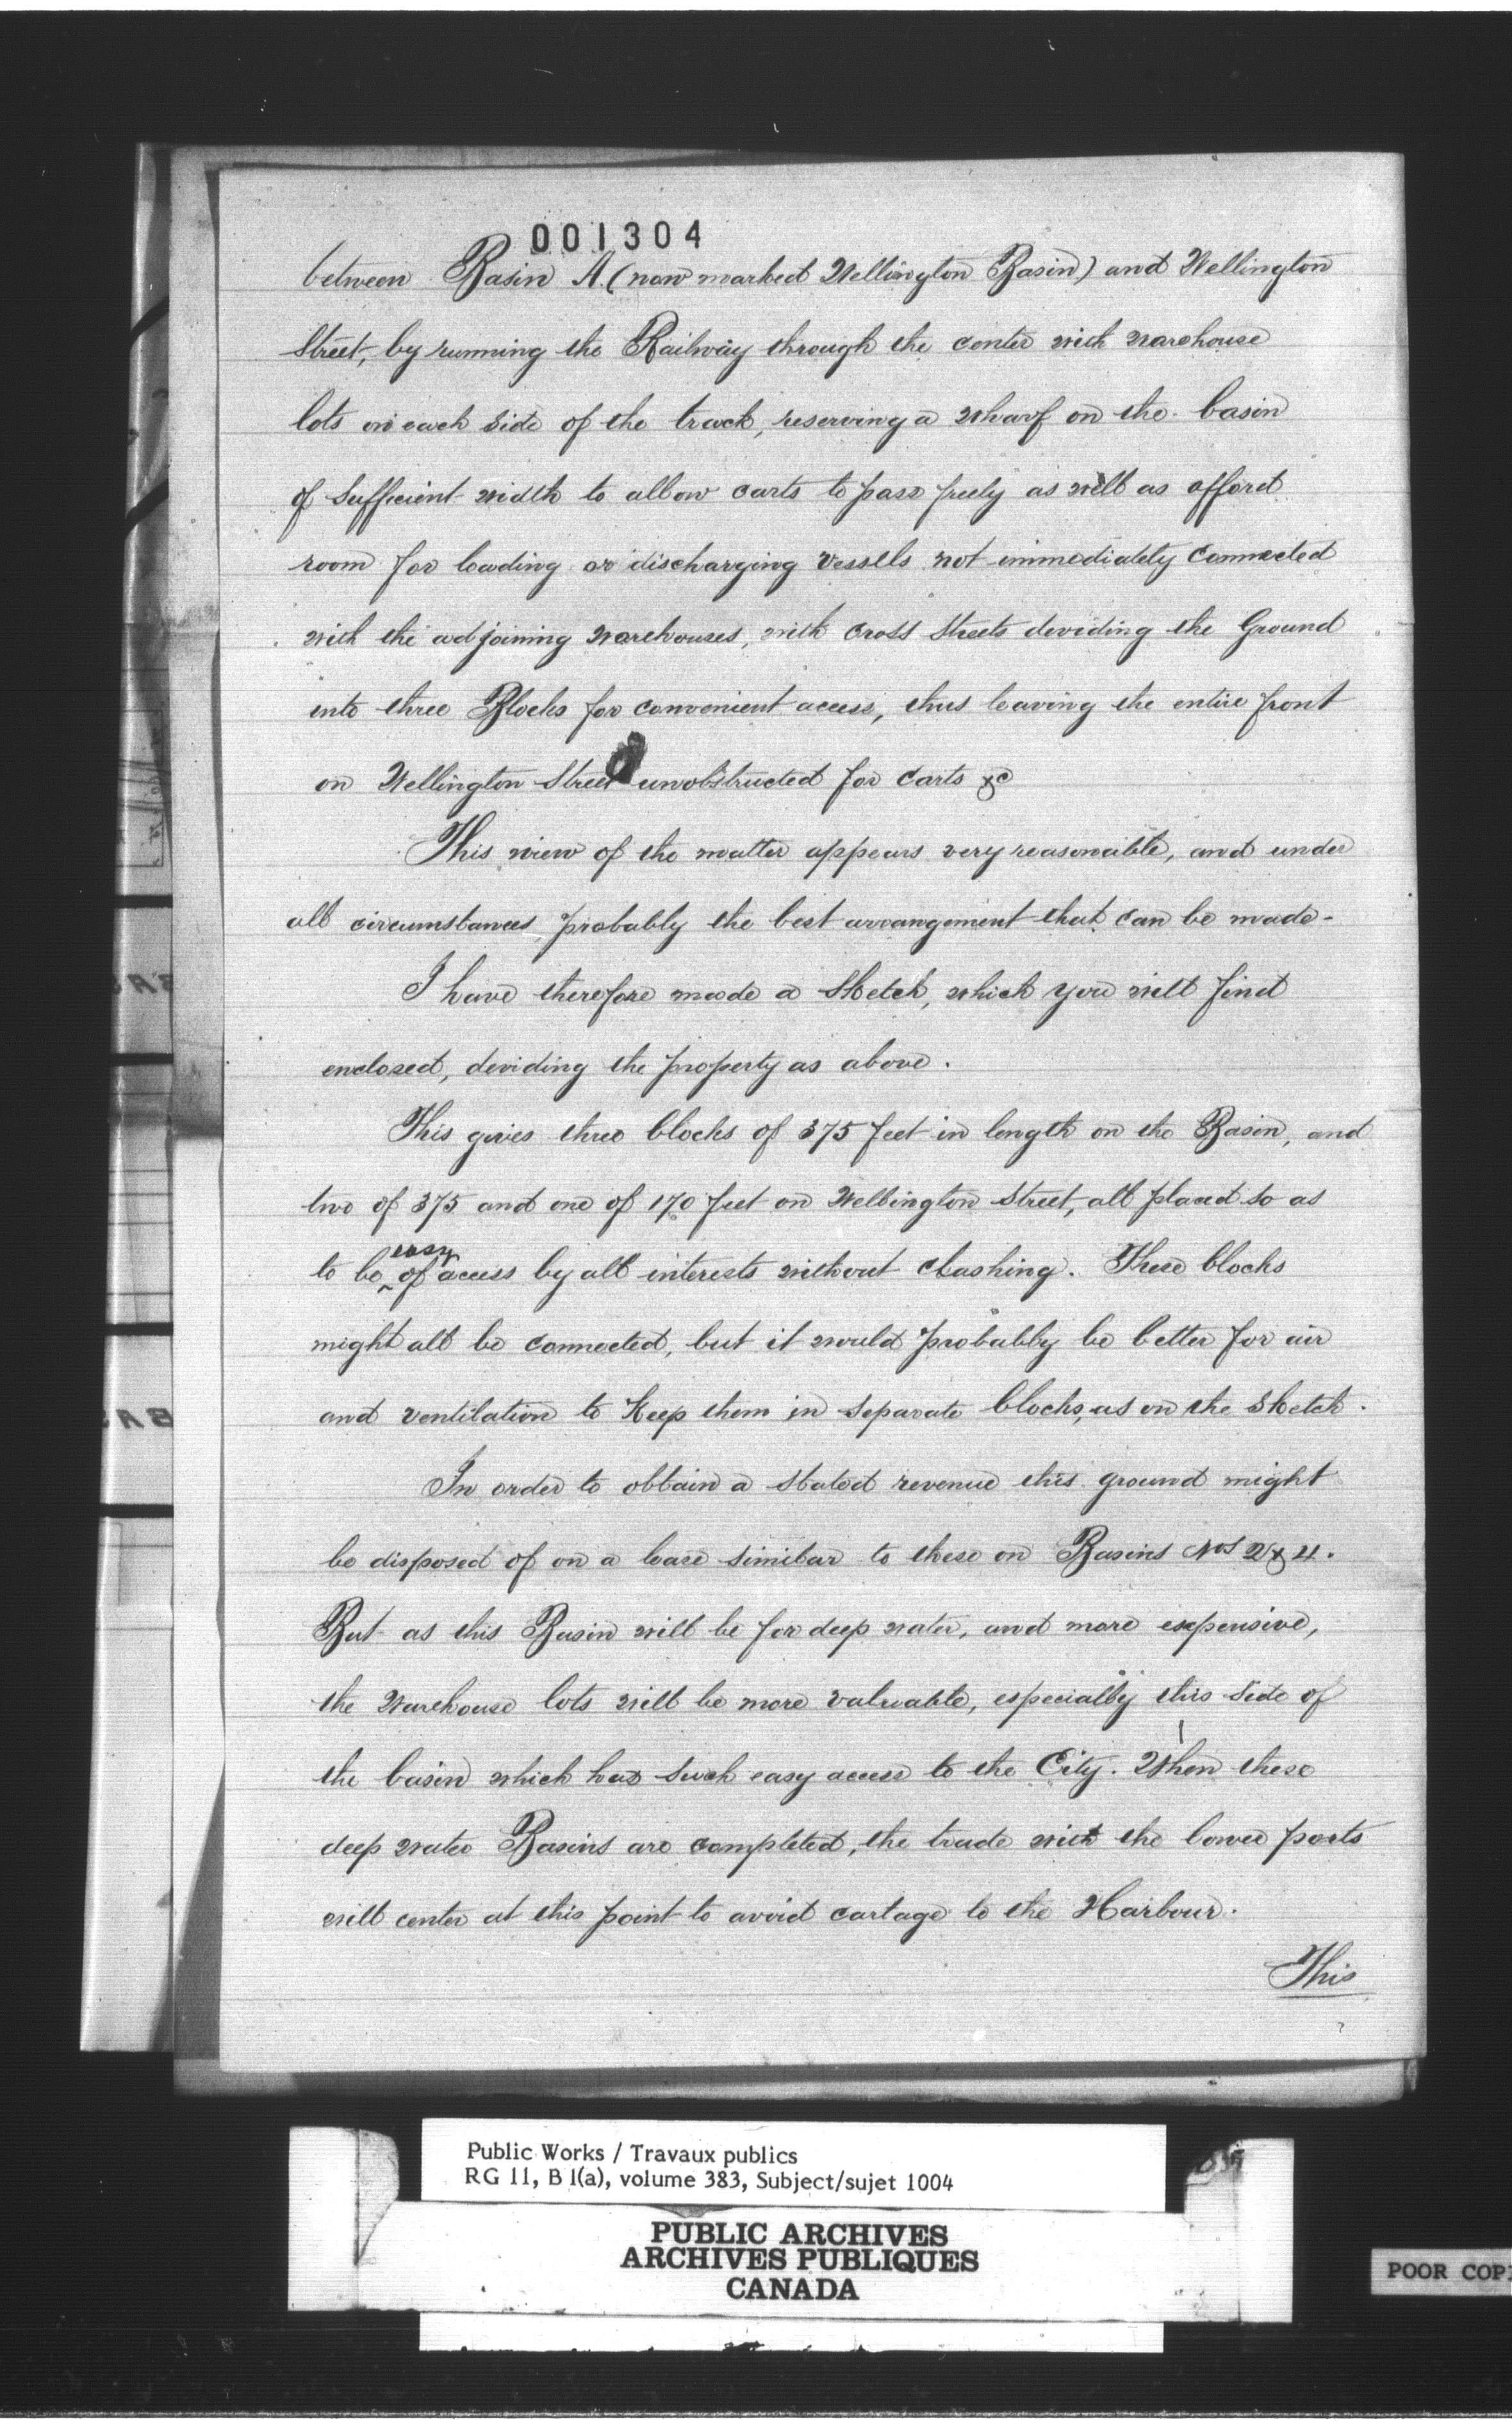 001304
between Basin A. (now marked Wellington Basin) and Wellington
Street, by running the Railway through the center with warehouse
lots on each side of the track, reserving a wharf on the basin
of sufficient width to allow carts to pass freely as well as afford
room for loading or discharging vessels not immediately connected
with the adjoining warehouses, with cross streets deviding the Ground
into three Blocks for convenient access, thus leaving the entire front
on Wellington Street unobstructed for carts &c
This view of the matter appears very reasonable, and under
all circumstances, probably the best arrangement that can be made-
I have therefore made a Sketch, which you will find
enclosed, deviding the property as above.
This gives three blocks of 375 feet in length on the Basin, and
two of 375 and one of 170 feet on Wellington Street, all placed so as
easy
to be ^ of access by all interests without clashing. These blocks
might all be connected, but it would probably be better for air
and ventilation to Keep them in separate blocks, as on the Sketch.
In order to obtain a stated revenue this ground might
be disposed of on a lease similar to these on Basins Nos 2 & 4.
But as this Basin will be for deep water, and more expensive,
the Warehouse lots will be more valuable, especially this side of
the basin which has such easy access to the City. When these
deep water Basins are completed, the trade with the lower ports
will center at this point to avoid cartage to the Harbour.
This
Public Works / Travaux publics
RG 11, B 1(a), volume 383, Subject/sujet 1004
PUBLIC ARCHIVES
ARCHIVES PUBLIQUES
CANADA
POOR COP